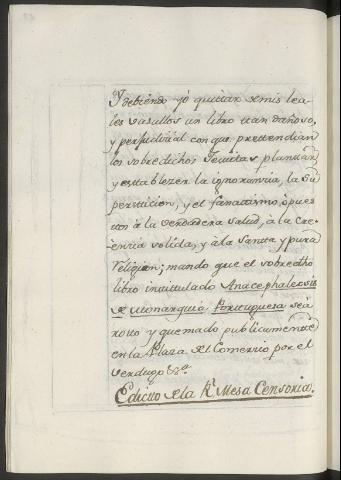 Y debiendo yo quittar de mis lea-
les vasallos un libro ttan dañoso,
y perjudicial con que prettendian
los sobredichos Jesuitas planttar
y esttablezer la ignorancia, la Su
persticion, y el fanattismo, opues
ttos à la verdadera salud, à la Cre-
encia solida, y à la Santta y pura
religion; mando que el sobredho
libro inttitulado Anacephaleosis
de Monarquia Porttuguesa sea
rotto y quemado publicamentte
en la Plaza del Comercio por el
verdugo &ª
Edicto de la Rl Mesa Censoria.